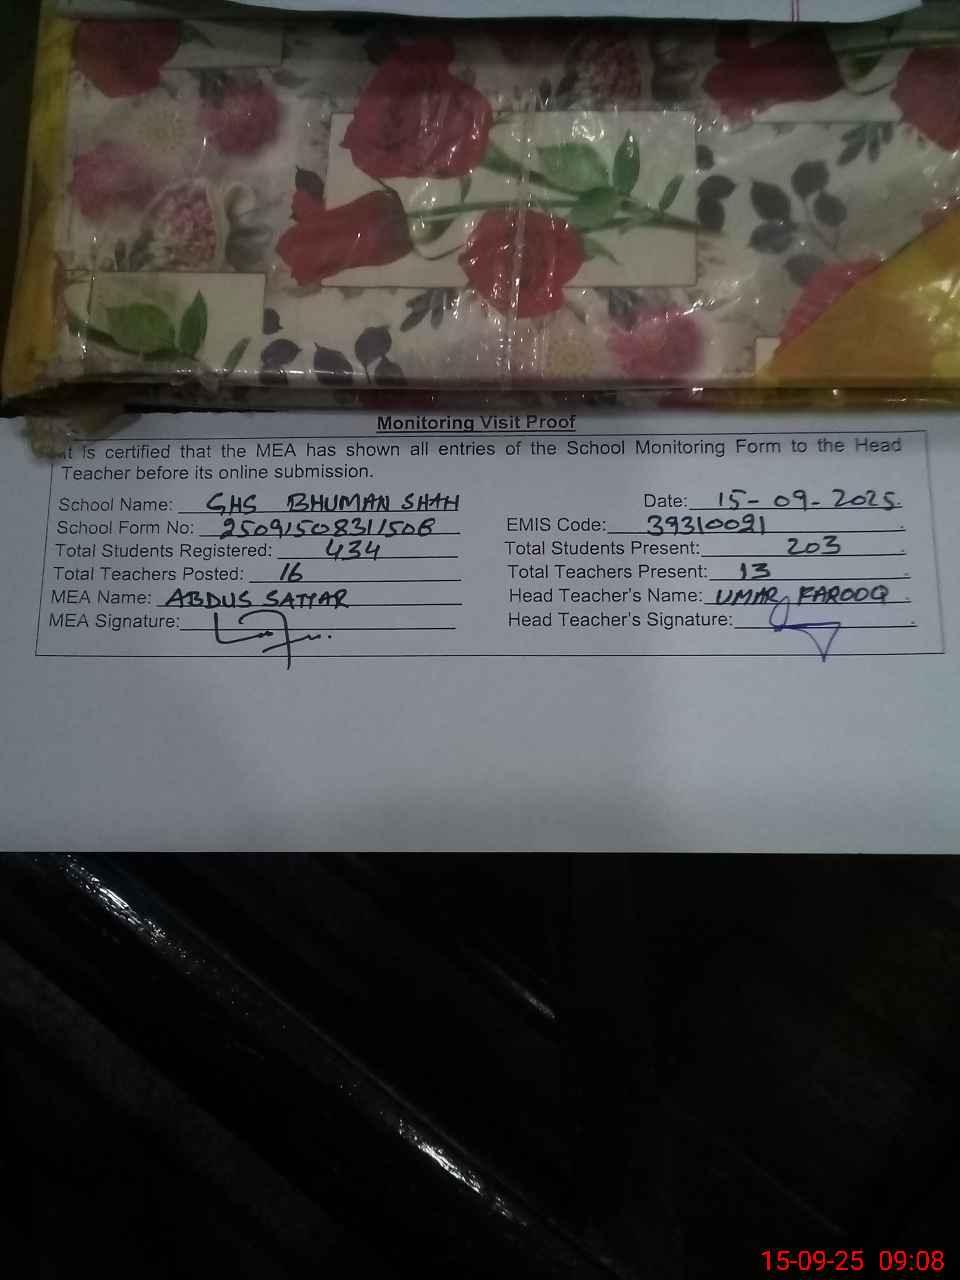 Monitoring Visit Proof
It is certified that the MEA has shown all entries of the School Monitoring Form to the Head
Teacher before its online submission.
School Name: GHS BHUMAN SHAH Date: 15-09-2025.
School Form No: 2509150831150B EMIS Code: 39310021
Total Students Registered: 434 Total Students Present: 203
Total Teachers Posted: 16 Total Teachers Present: 13
MEA Name: ABDUS SATTAR Head Teacher's Name: UMAR FAROOQ
MEA Signature: Head Teacher's Signature:
15-09-25 09:08